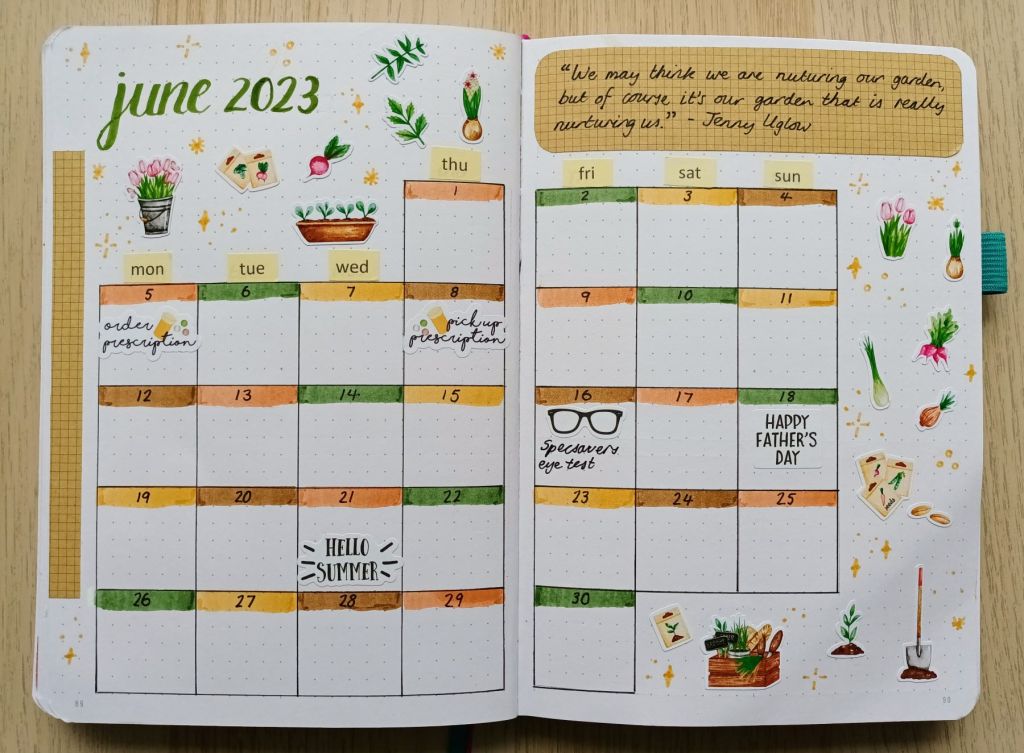 june 2023
thu
1
mon
tue
wed
5
6
7
8
order
prescription
pick up
prescription
12
13
14
15
19
20
21
22
HELLO
SUMMER
26
27
28
29
89
"We may think we are nuturing our garden,
but of course it's our garden that is really
nurturing us." - Jenny Uglow
fri
sat
sun
2
3
4
9
10
11
16
17
18
Specsavers
eye test
HAPPY
FATHER'S
DAY
23
24
25
30
90